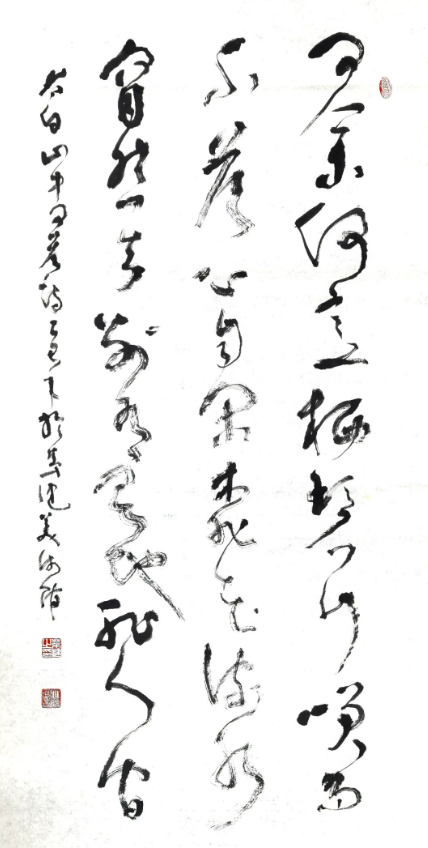 问余何意栖碧山笑而
不答心自闲桃花流水
窅然去别有天地非人间
太白山中问答诗